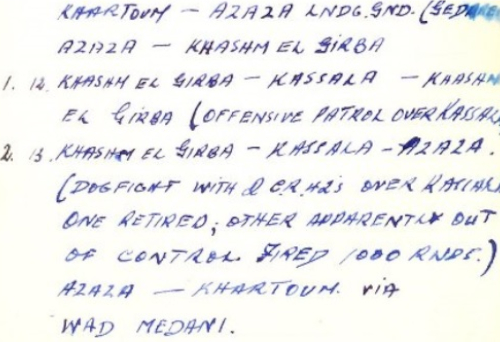 KHARTOUM — AZAZA LNDG. GND. (GEDAREF
AZAZA — KHASHM EL GIRBA
1. 12. KHASHM EL GIRBA — KASSALA — KHASHM
EL GIRBA (OFFENSIVE PATROL OVER KASSALA
2. 13. KHASHM EL GIRBA — KASSALA — AZAZA.
(DOGFIGHT WITH 2 C.R.42s OVER KASSALA
ONE RETIRED; OTHER APPARENTLY OUT
OF CONTROL. FIRED 1000 RNDS.)
AZAZA — KHARTOUM. via
WAD MEDANI.